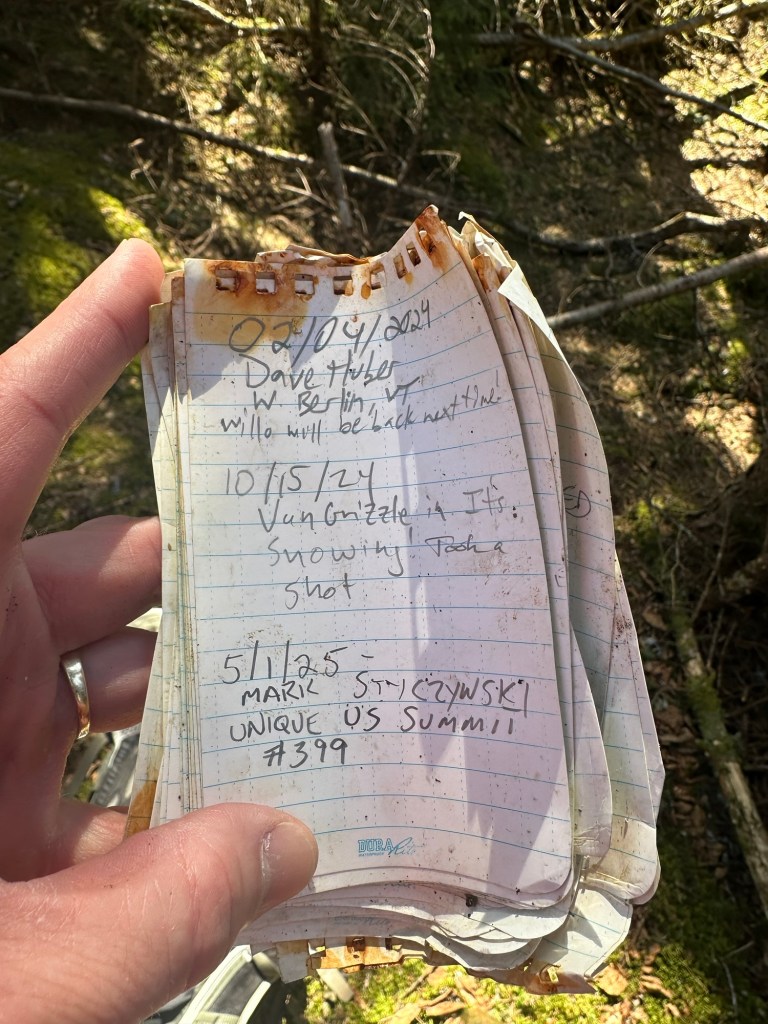 02/04/2024
Dave Huber
W. Berlin, VT
will be back next time!
10/15/24
Van Grizzle in Its
Snowing! Took a
shot
5/1/25 -
MARK STYCZYWSKI
UNIQUE US SUMMIT
#399
ED
DURA
Rite